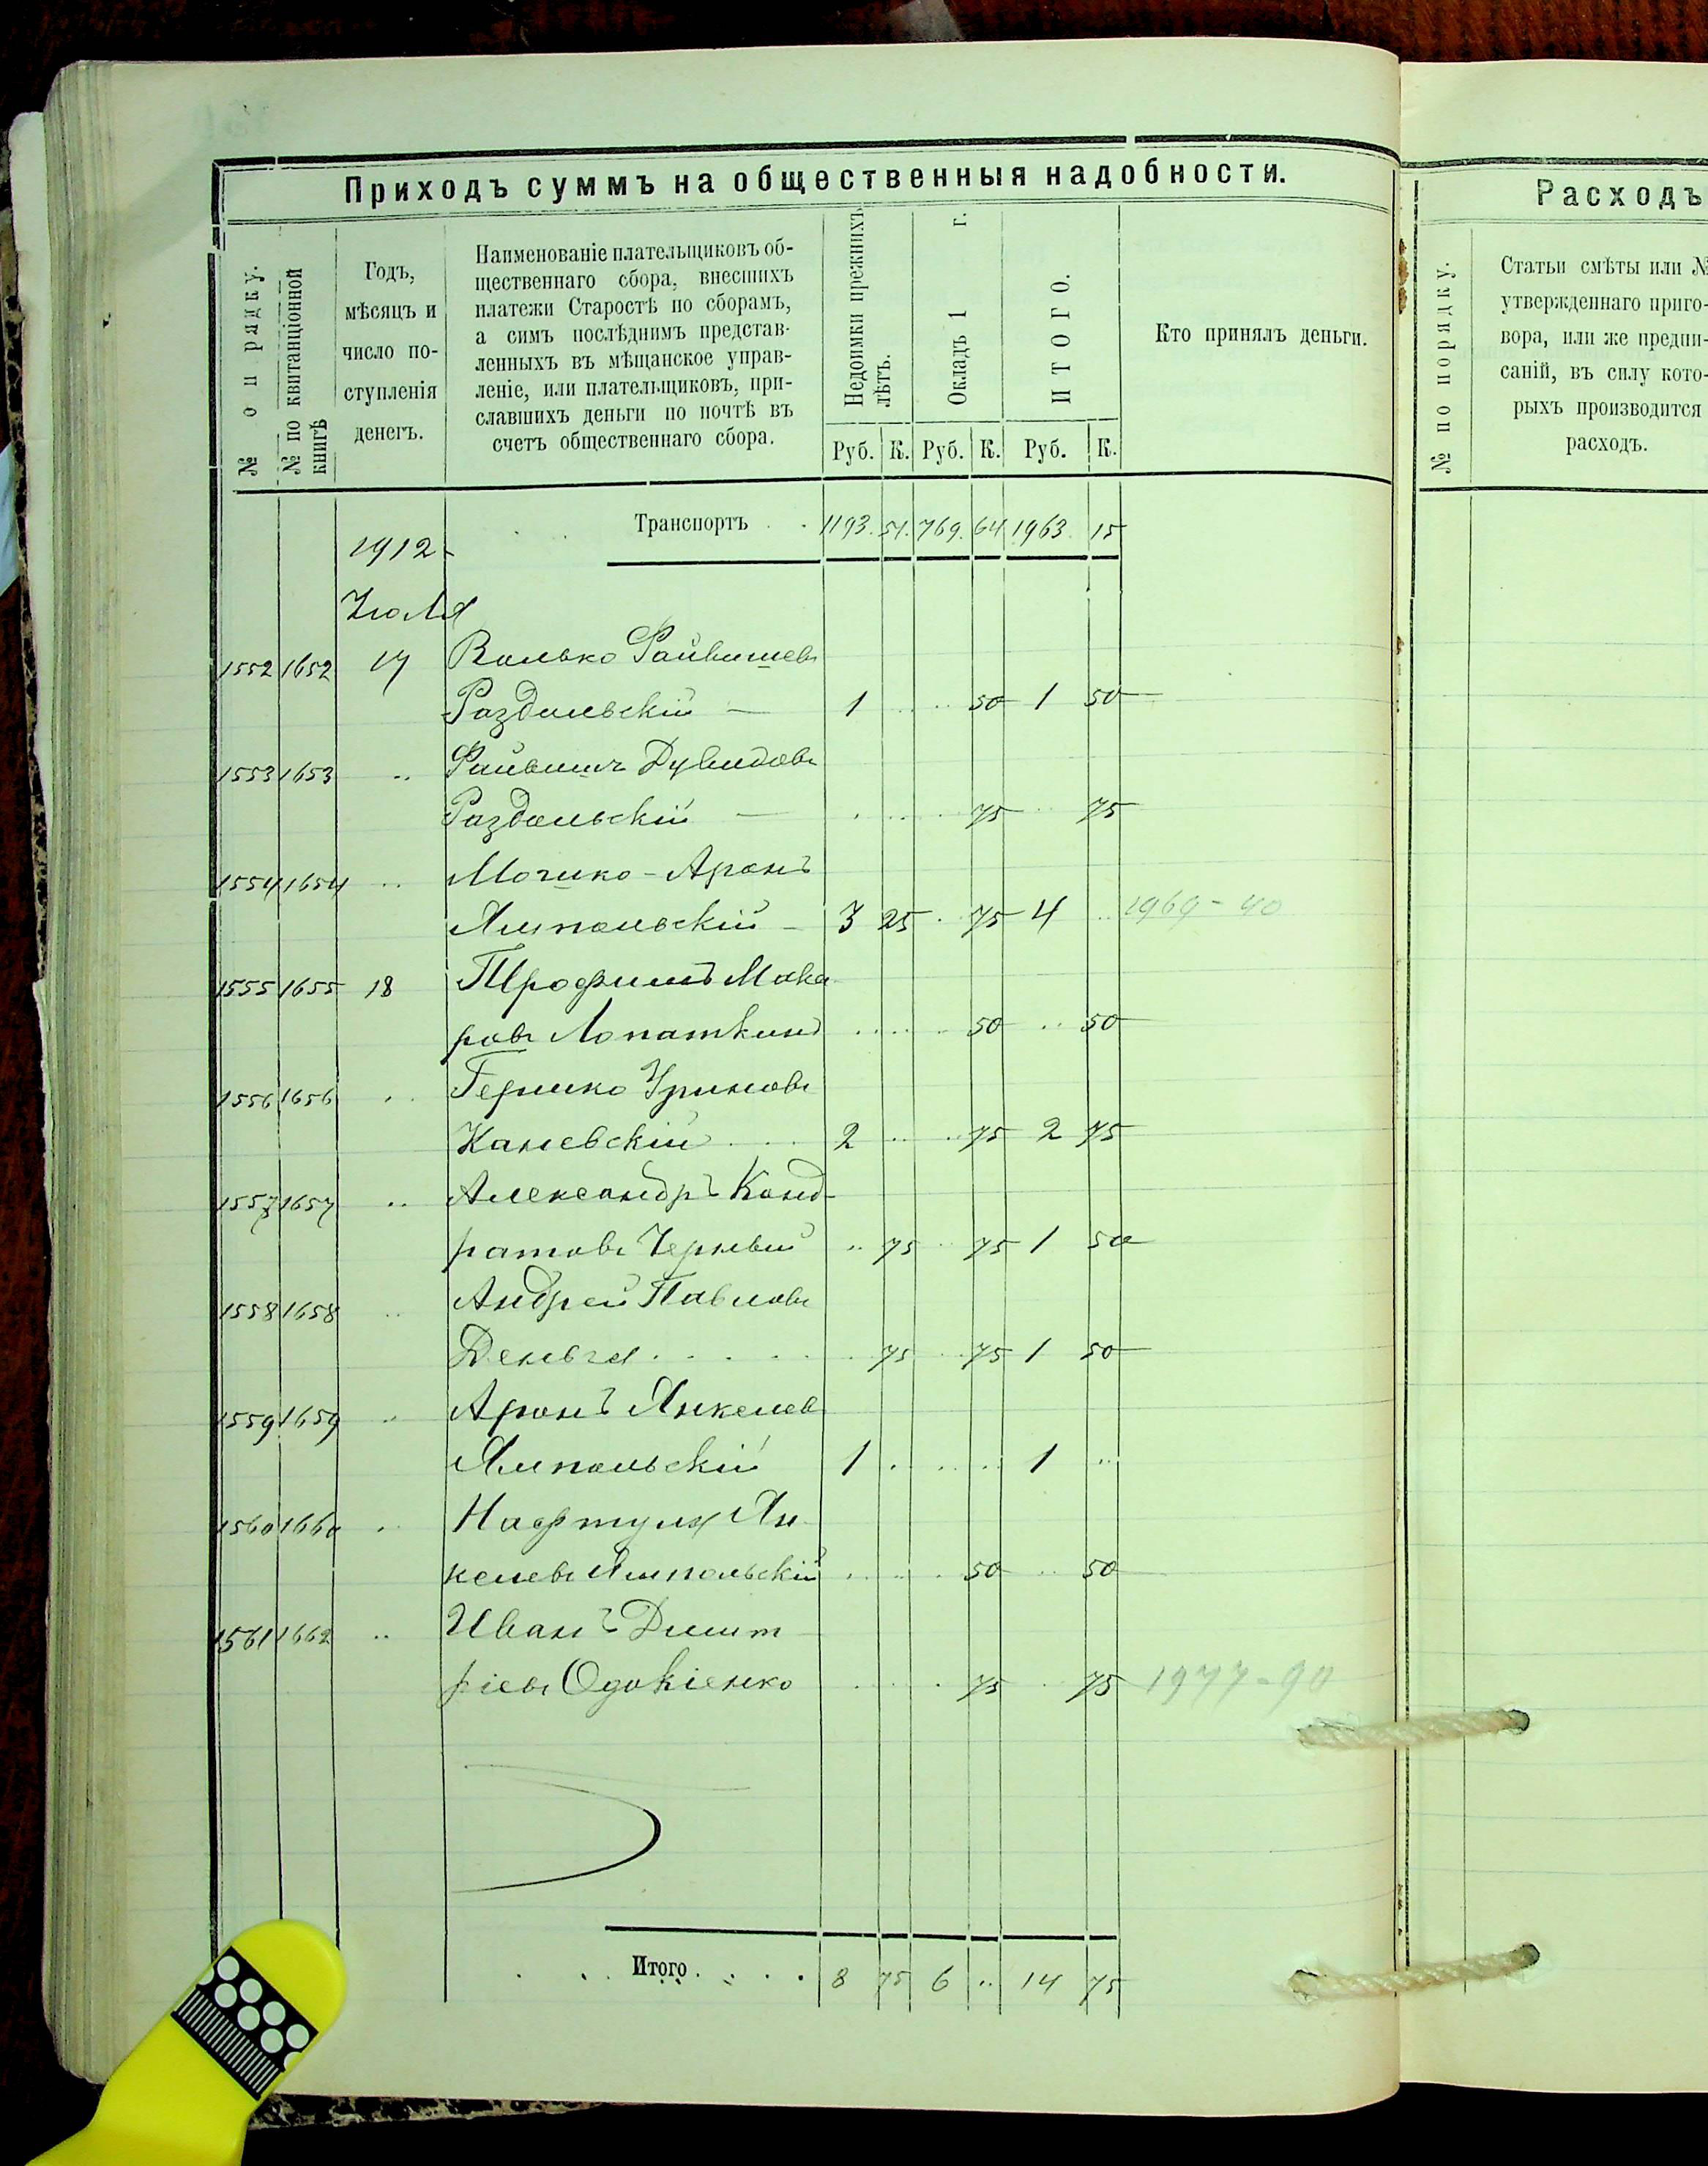 Приходъ суммъ на общественныя надобности.
№ по рядку.
№ по квитанціонной книгѣ
Годъ, мѣсяцъ и число поступленія денегъ.
Наименованіе плательщиковъ об-
щественнаго сбора, внесшихъ
платежи Старостѣ по сборамъ,
а симъ послѣднимъ представ-
ленныхъ въ мѣщанское управ-
леніе, или плательщиковъ, при-
славшихъ деньги по почтѣ въ
счетъ общественнаго сбора.
Недоимки прежнихъ лѣтъ.
Окладъ 1 г.
ИТОГО.
Кто принялъ деньги.
Руб. К. Руб. К. Руб. К.
Транспортъ 1193. 51. 769. 64 1963. 15
1912
Іюля
1552 1652 17 Волько Файвишевъ
Раздольскій — 1 .. .. 50 1 50
1553 1653 .. Файвишъ Дувидовъ
Раздольскій — . .. .. 75 .. 75
1554 1654 .. Мошко-Аронъ
Ямпольскій — 3 25 . 75 4 .. 1969-40
1555 1655 18 Трофимъ Мака
ровъ Лопаткинъ .. .. . 50 .. 50
1556 1656 .. Гершко Уриновъ
Каневскій 2 .. .. 75 2 75
1557 1657 .. Александръ Конд-
ратовъ Черный .. 75 .. 75 1 50
1558 1658 .. Андрей Павловъ
Деньга . . . . 75 .. 75 1 50
1559 1659 .. Аронъ Янкелев
Ямпольскій 1 . .. .. 1 ..
1560 1660 .. Нафтуля Ян
келевъ Ямпольскій .. .. . 50 .. 50
1561 1662 .. Иванъ Димит
ріевъ Одокіенко . .. . 75 .. 75 1977-90
Итого 8 75 6 .. 14 75
Расходъ
№ по порядку.
Статьи смѣты или №
утвержденнаго приго-
вора, или же предпи-
саній, въ силу кото-
рыхъ производится
расходъ.